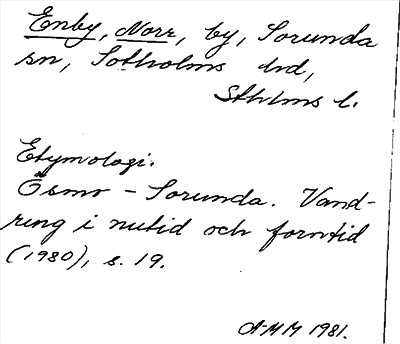 Enby, Norr, by, Sorunda
sn, Sotholms hd,
Sthlms l.
Etymologi.
Ösmo - Sorunda. Vand-
ring i nutid och forntid
(1980), s. 19.
AMM 1981.